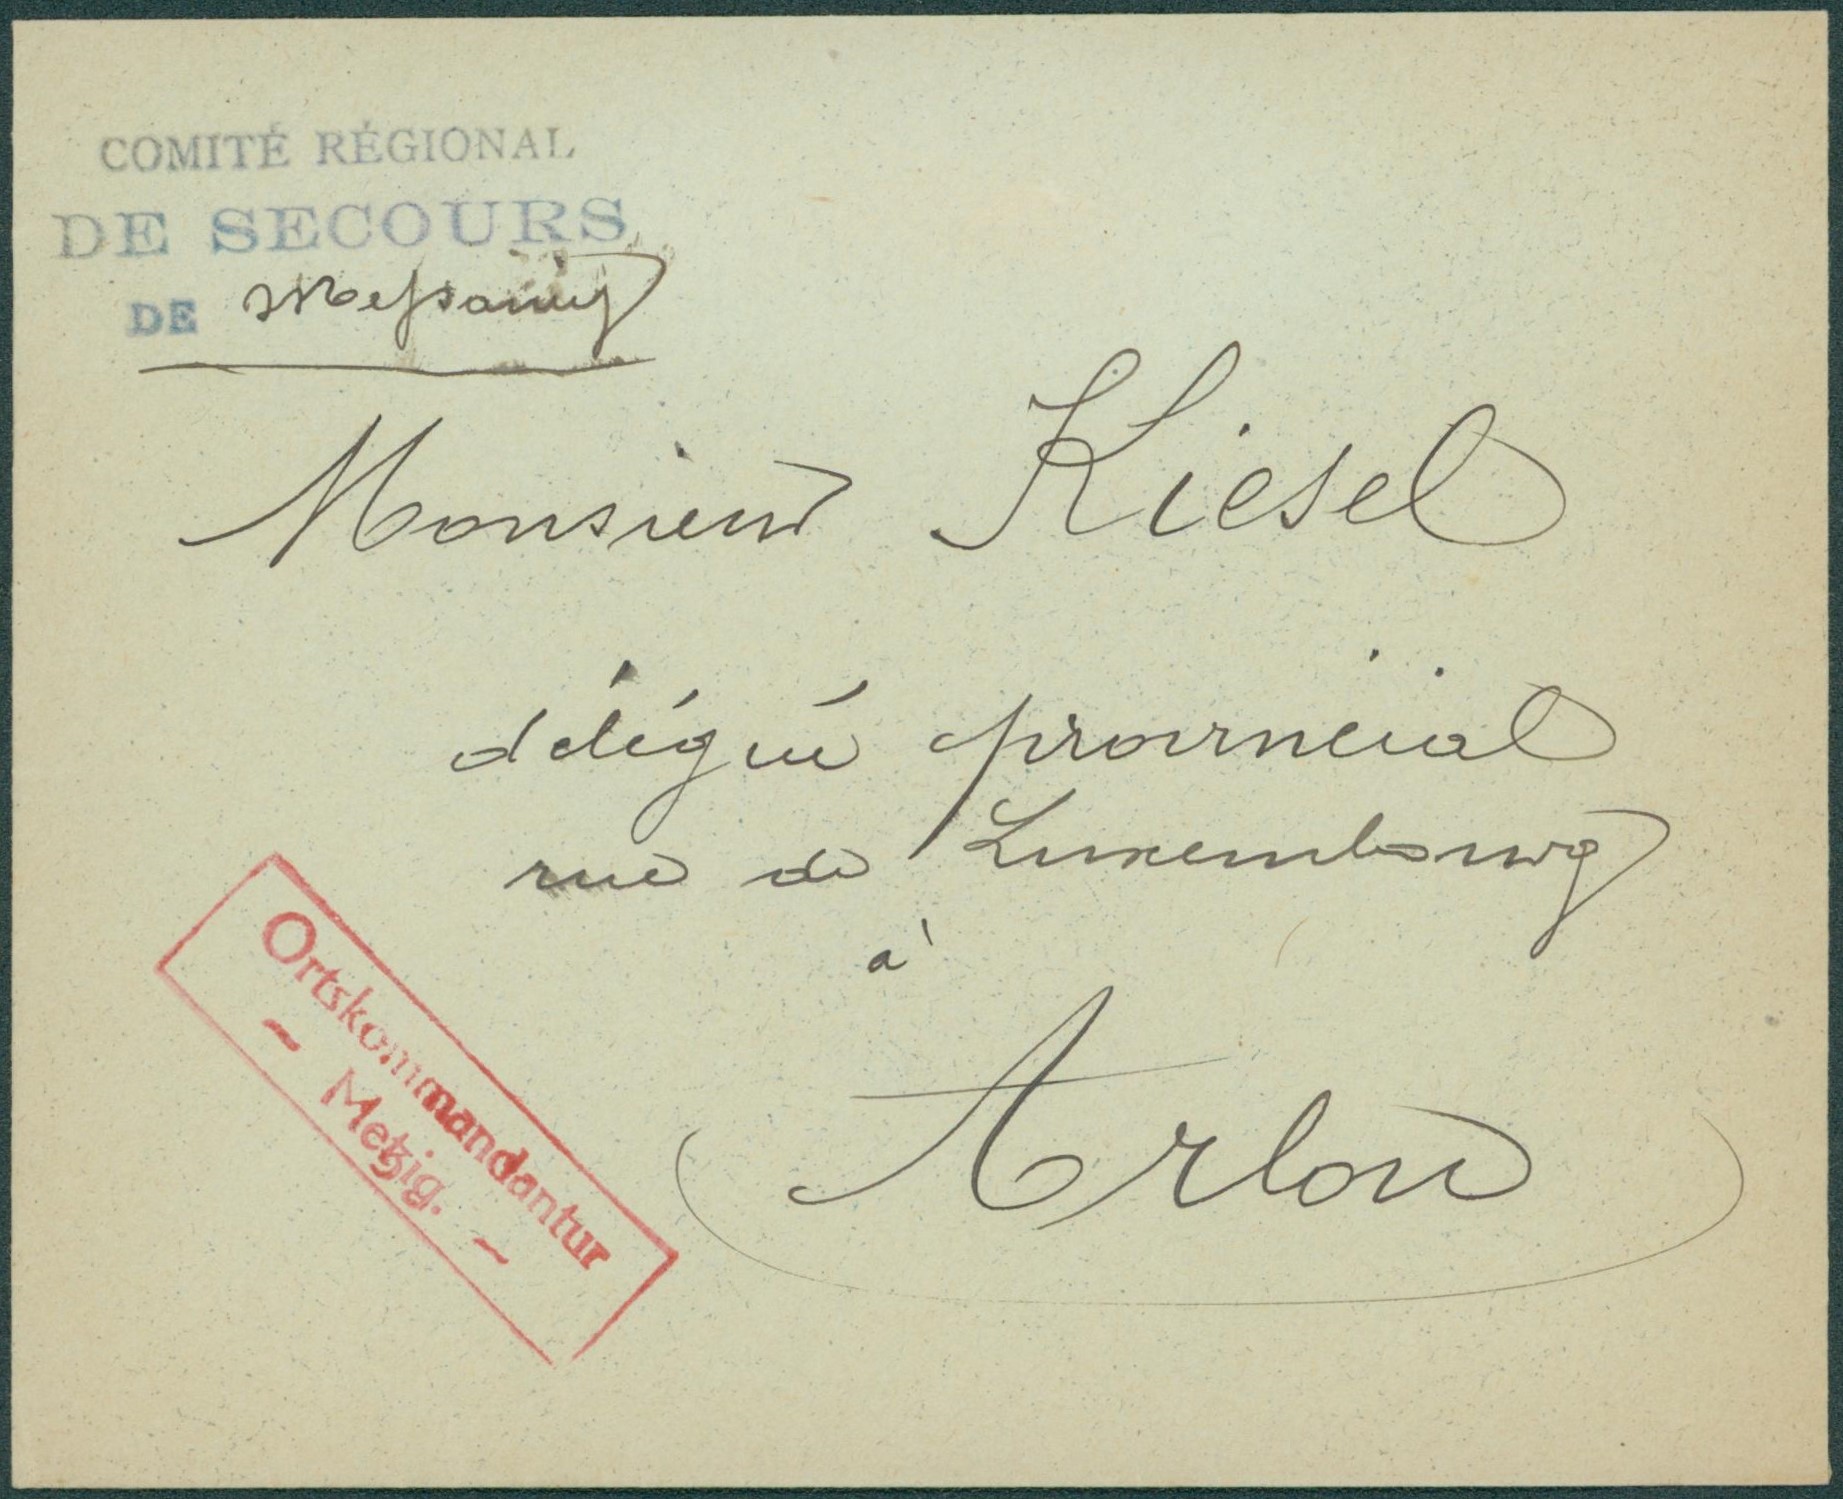 COMITÉ RÉGIONAL
DE SECOURS
DE Messancy
Monsieur Kiesel
délégué provincial
rue de Luxembourg
à
Arlon
Ortskommandantur
- Metzig. -